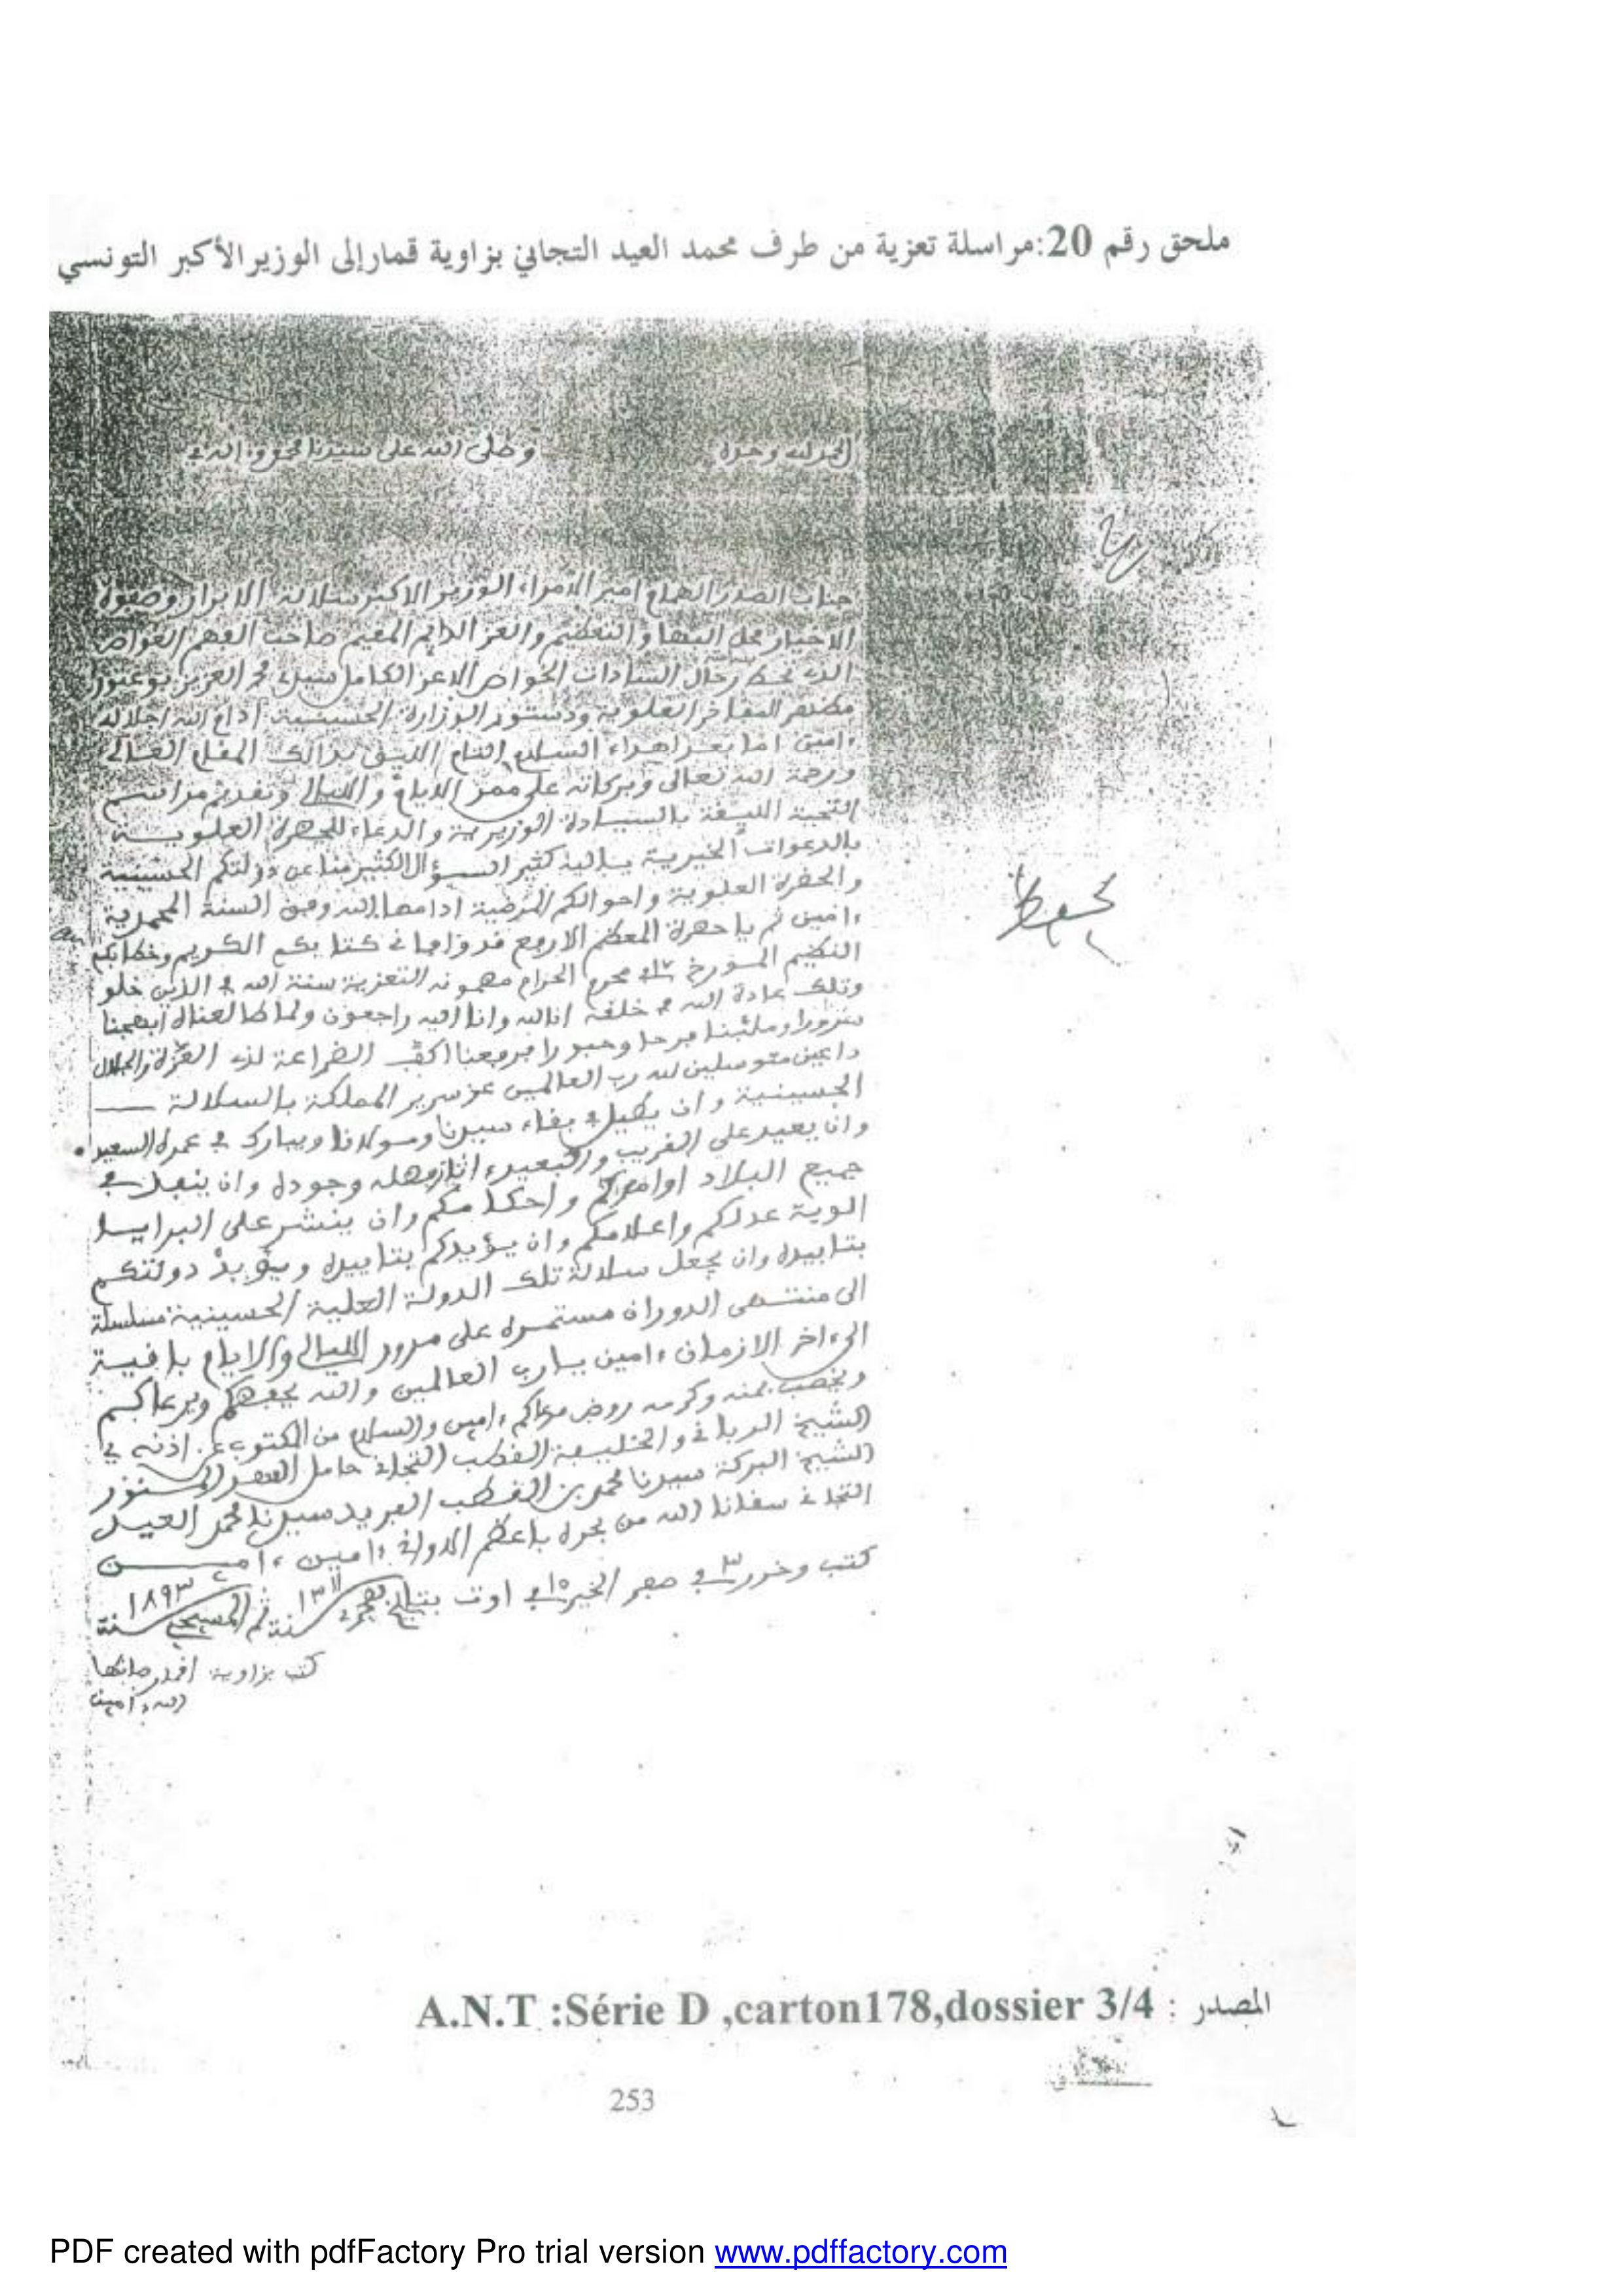 ملحق رقم 20:مراسلة تعزية من طرف محمد العيد التجاني بزاوية قمار إلى الوزير الأكبر التونسي
الحمد لله وحده وصلى الله على سيدنا محمد
جناب الصدر الهمام امير الامراء الوزير الاكبر سلالة الابرار وصفوة
الاخيار محل البها والتعظيم والعز الدايم المقيم صاحب الفهم الغواص
السادات الخواص الاعز الكامل محمد العزيز بوعتور
المفاخر العلوية ودستور الوزارة الحسينية ادام الله اجلاله
ءامين اما بعد اهداء السلام التام اللايق بذالك المقام العالي
ورحمة الله تعالى وبركاته على ممر الايام والليالي وتقديم مراسم
التحية اللايقة بالسيادة الوزيرية والدعاء للحضرة العلويـة
بالدعوات الخيرية يليه كثير السـؤال الكثير منا عن دولتكم الحسينية
والحضرة العلوية واحوالكم المرضية ادامها الله وفق السنة المحمدية
ءامين ثم يا حضرة المعظم الارفع قد وافانا كتابكم الكريم وخطابكم
المـؤرخ محرم الحرام التعزية سنة الله في الذين خلو
وتلك عادة الله في خلقه انا لله وانا اليه راجعون ولما طالعناه ابهجنا
سرورا وملئنا فرحا وحبورا فرفعنا اكف الضراعة لذي العزة والجلال
داعين متوسلين لله رب العالمين عز سرير المملكة بالسلالة
الحسينية وان يطيل في بقاء سيدنا ومولانا ويبارك في عمره السعيد
وان يعيد على القريب والبعيد وجوده وان ينفذ في
جميع البلاد اوامركم واحكامكم وان ينشر على البرايـا
الوية عدلكم واعلامكم وان يـؤيدكم بتاييده ويؤبد دولتكم
بتابيده وان يجعل سلالة تلك الدولة العلية الحسينية مسلسلة
الى منتهى الدوران مستمره على مرور الليالي والايام باقيـة
الىءاخر الازمان ءامين يارب العالمين والله يحفظكم ويرعاكم
ويخصب بمنه وكرمه روض مرعاكم ءامين والسلام من المكتوب عن اذنه
الشيخ الرباني والخليفة القطب التجاني حامل
الشيخ البركة سيدنا محمد بن القطب الفريد سيدنا محمد العيد
التجاني سقانا الله من بحره باعظم الاواني ءامين ءاميـن
كتب وحرر في ٣ صفر الخير ١٥ اوت سنة ١٣١١ المسيحي سنة ١٨٩٣
كتب بزاوية اقمار صانها
الله ءامين
المصدر : A.N.T :Série D ,carton178,dossier 3/4
253
PDF created with pdfFactory Pro trial version www.pdffactory.com